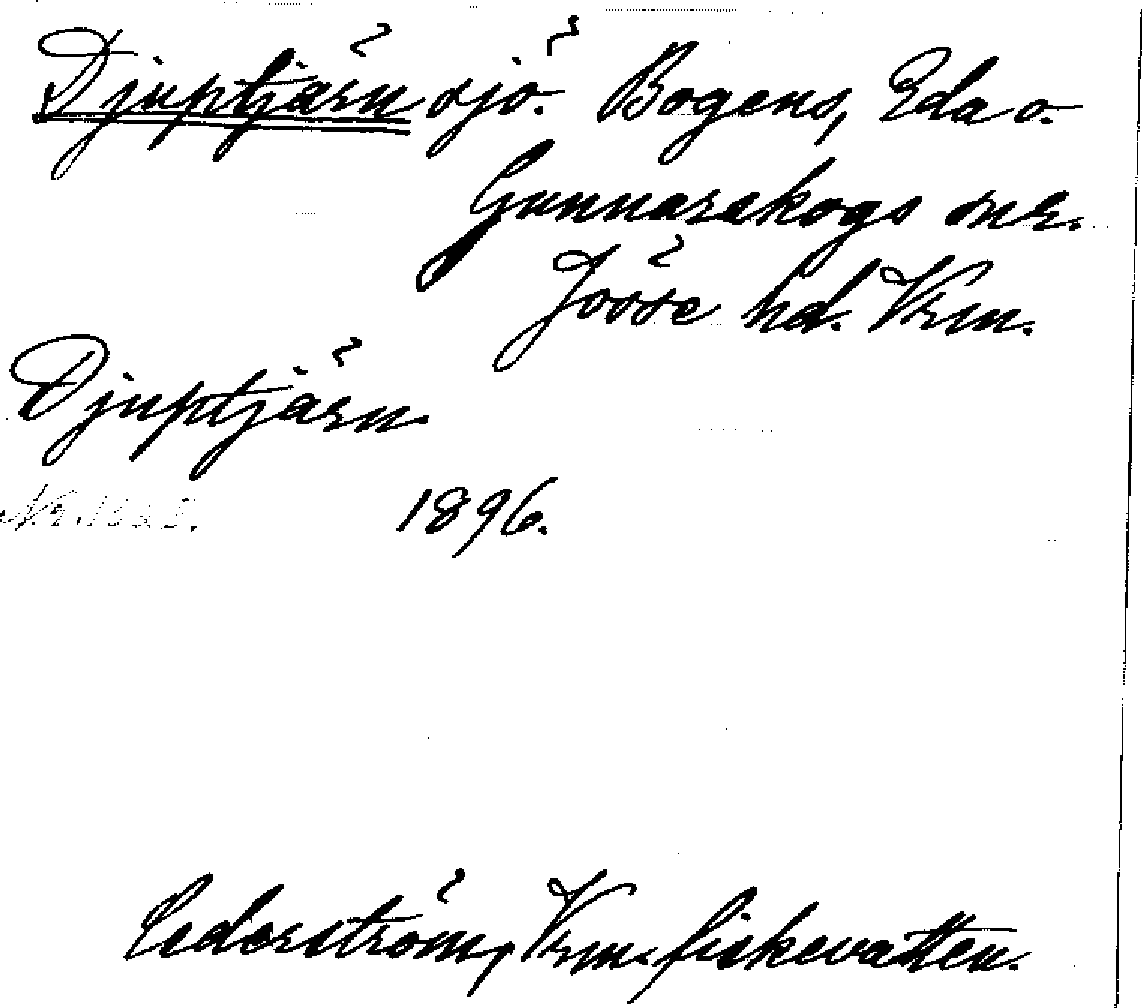 Djuptjärn sjö. Bogens, Eda o.
Gunnarskogs snr.
Jösse hd. Vrm.
Djuptjärn.
1896.
Cederström, Vrm. fiskevatten.